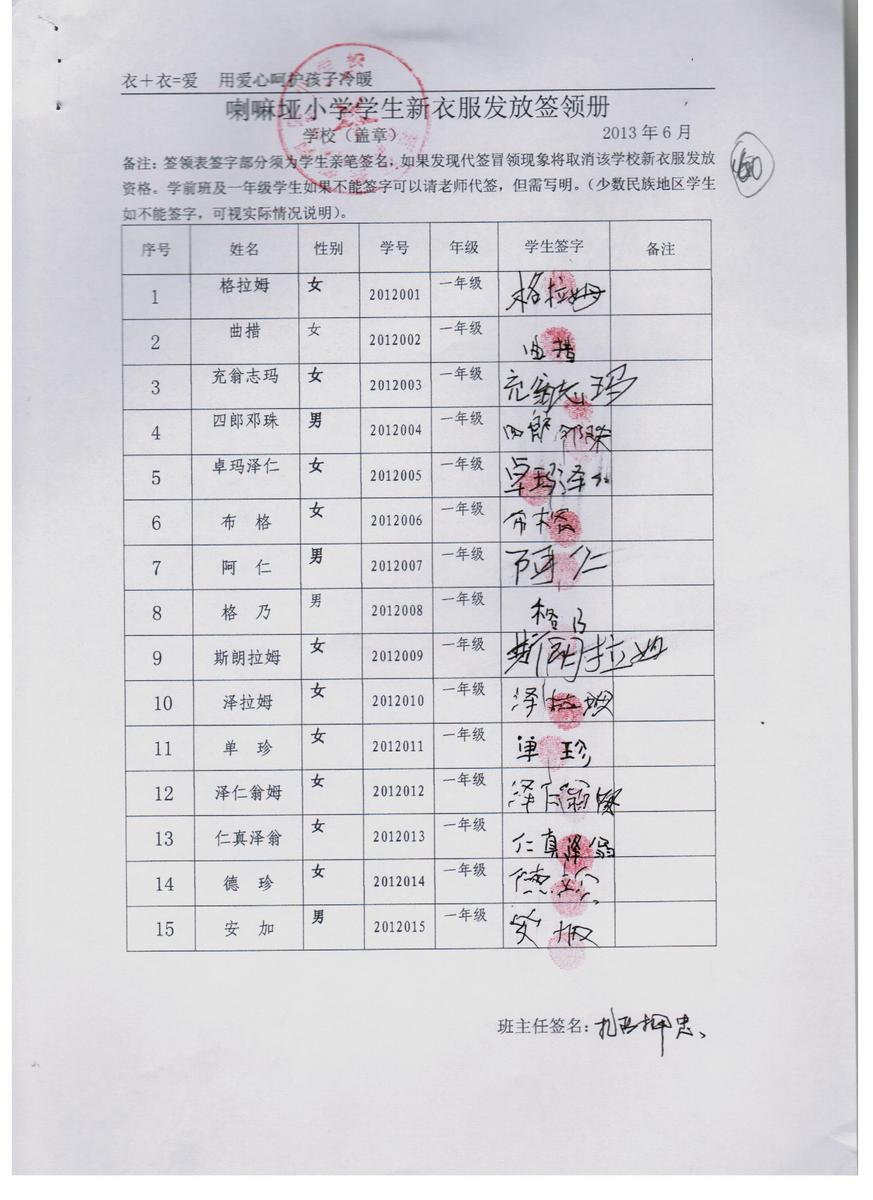 衣+衣=爱 用爱心呵护孩子冷暖
喇嘛垭小学学生新衣服发放签领册
学校（盖章） 2013 年 6 月
备注：签领表签字部分须为学生亲笔签名，如果发现代签冒领现象将取消该学校新衣服发放
资格。学前班及一年级学生如果不能签字可以请老师代签，但需写明。（少数民族地区学生
如不能签字，可视实际情况说明）。
序号 姓名 性别 学号 年级 学生签字 备注
1 格拉姆 女 2012001 一年级 格拉姆
2 曲措 女 2012002 一年级 曲措
3 充翁志玛 女 2012003 一年级 充翁志玛
4 四郎邓珠 男 2012004 一年级 四郎邓珠
5 卓玛泽仁 女 2012005 一年级 卓玛泽仁
6 布 格 女 2012006 一年级 布格
7 阿 仁 男 2012007 一年级 阿仁
8 格 乃 男 2012008 一年级 格乃
9 斯朗拉姆 女 2012009 一年级 斯朗拉姆
10 泽拉姆 女 2012010 一年级 泽拉姆
11 单 珍 女 2012011 一年级 单珍
12 泽仁翁姆 女 2012012 一年级 泽仁翁姆
13 仁真泽翁 女 2012013 一年级 仁真泽翁
14 德 珍 女 2012014 一年级 德珍
15 安 加 男 2012015 一年级 安加
班主任签名：